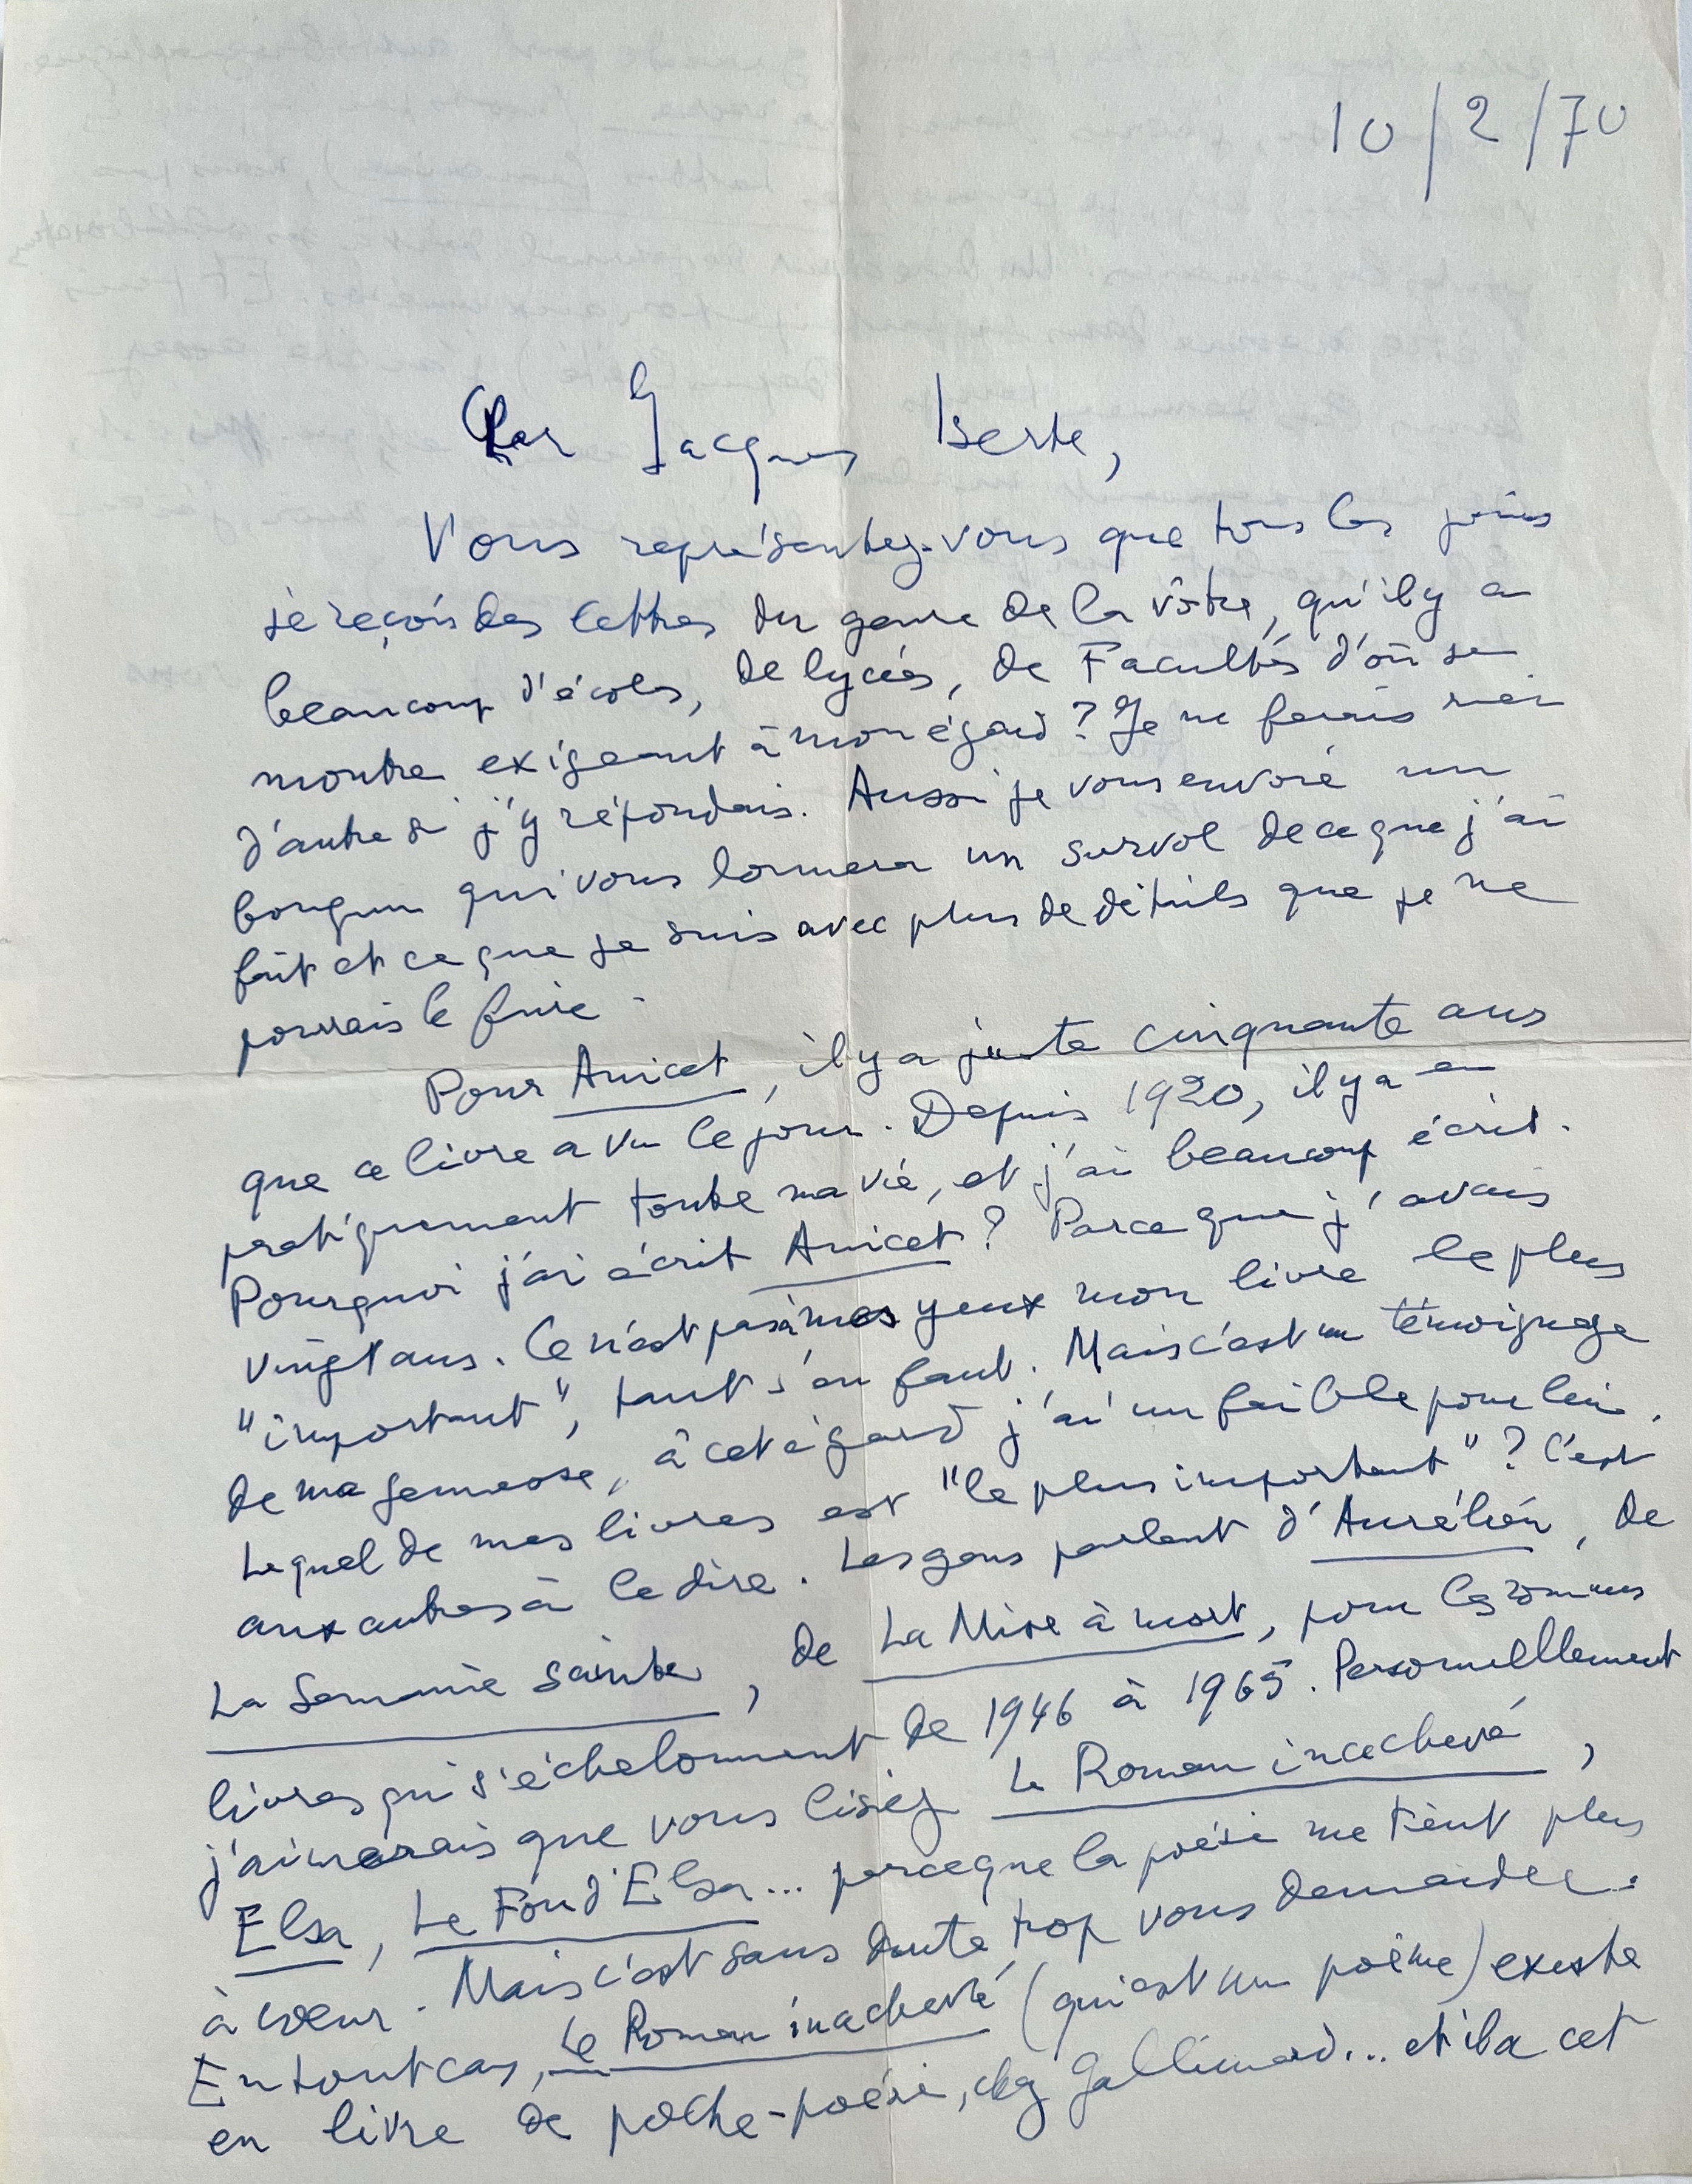 10/2/70
Cher Jacques Iserte,
Vous représentez-vous que tous les jours
je reçois des lettres du genre de la vôtre, qu'il y a
beaucoup d'écoles, de lycées, de Facultés d'où se
montre exigeant à mon égard ? Je ne ferais rien
d'autre si j'y répondais. Aussi je vous envoie un
bouquin qui vous donnera un survol de ce que j'ai
fait et ce que je suis avec plus de détails que je ne
pourrais le faire.
Pour Anicet, il y a juste cinquante ans
que ce livre a vu le jour. Depuis 1920, il y a eu
pratiquement toute ma vie, et j'ai beaucoup écrit.
Pourquoi j'ai écrit Anicet ? Parce que j'avais
vingt ans. Ce n'est pas à mes yeux mon livre le plus
"important", tant s'en faut. Mais c'est un témoignage
de ma jeunesse, à cet égard j'ai un faible pour lui.
Lequel de mes livres est "le plus important" ? C'est
aux autres à le dire. Les gens parlent d'Aurélien, de
La Semaine Sainte, de La Mise à mort, pour les romans
livres qui s'échelonnent de 1946 à 1965. Personnelllement
j'aimerais que vous lisiez Le Roman inachevé,
Elsa, Le Fou d'Elsa... parceque la poésie me tient plus
à coeur. Mais c'est sans doute trop vous demander.
En tout cas, Le Roman inachevé (qui est un poème) existe
en livre de poche-poésie, chez Gallimard... et il a cet